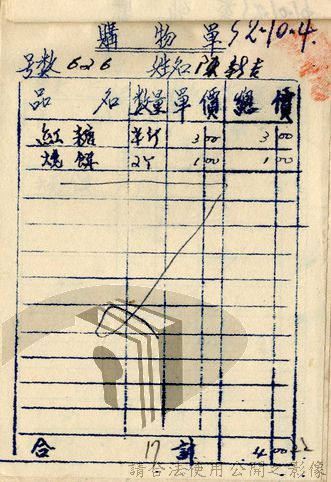 購物單 52-10-4.
号數 626 姓名 陳新吉
品名 數量 單價 總價
紅糖 半斤 3 00 3 00
燒餅 2个 1 00 1 00
合 計 4 00
請合法使用公開之影像